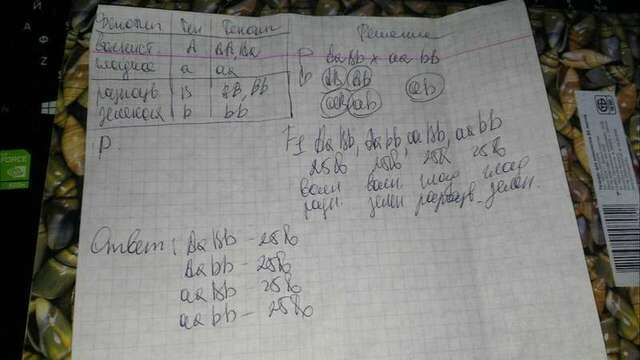 Фенотип Ген Генотип
волнист. A AA, Aa
гладкое a aa
разноцв B BB, Bb
зеленая b bb
P.
Решение
P AaBb x aa bb
G AB Ab ab
aB ab
F1 AaBb, Aabb, aaBb, aabb
25% 25% 25% 25%
волн волн. глад глад
разн. зелен разноцв. зелен.
Ответ: AaBb - 25%
Aabb - 25%
aaBb - 25%
aabb - 25%
FORCE